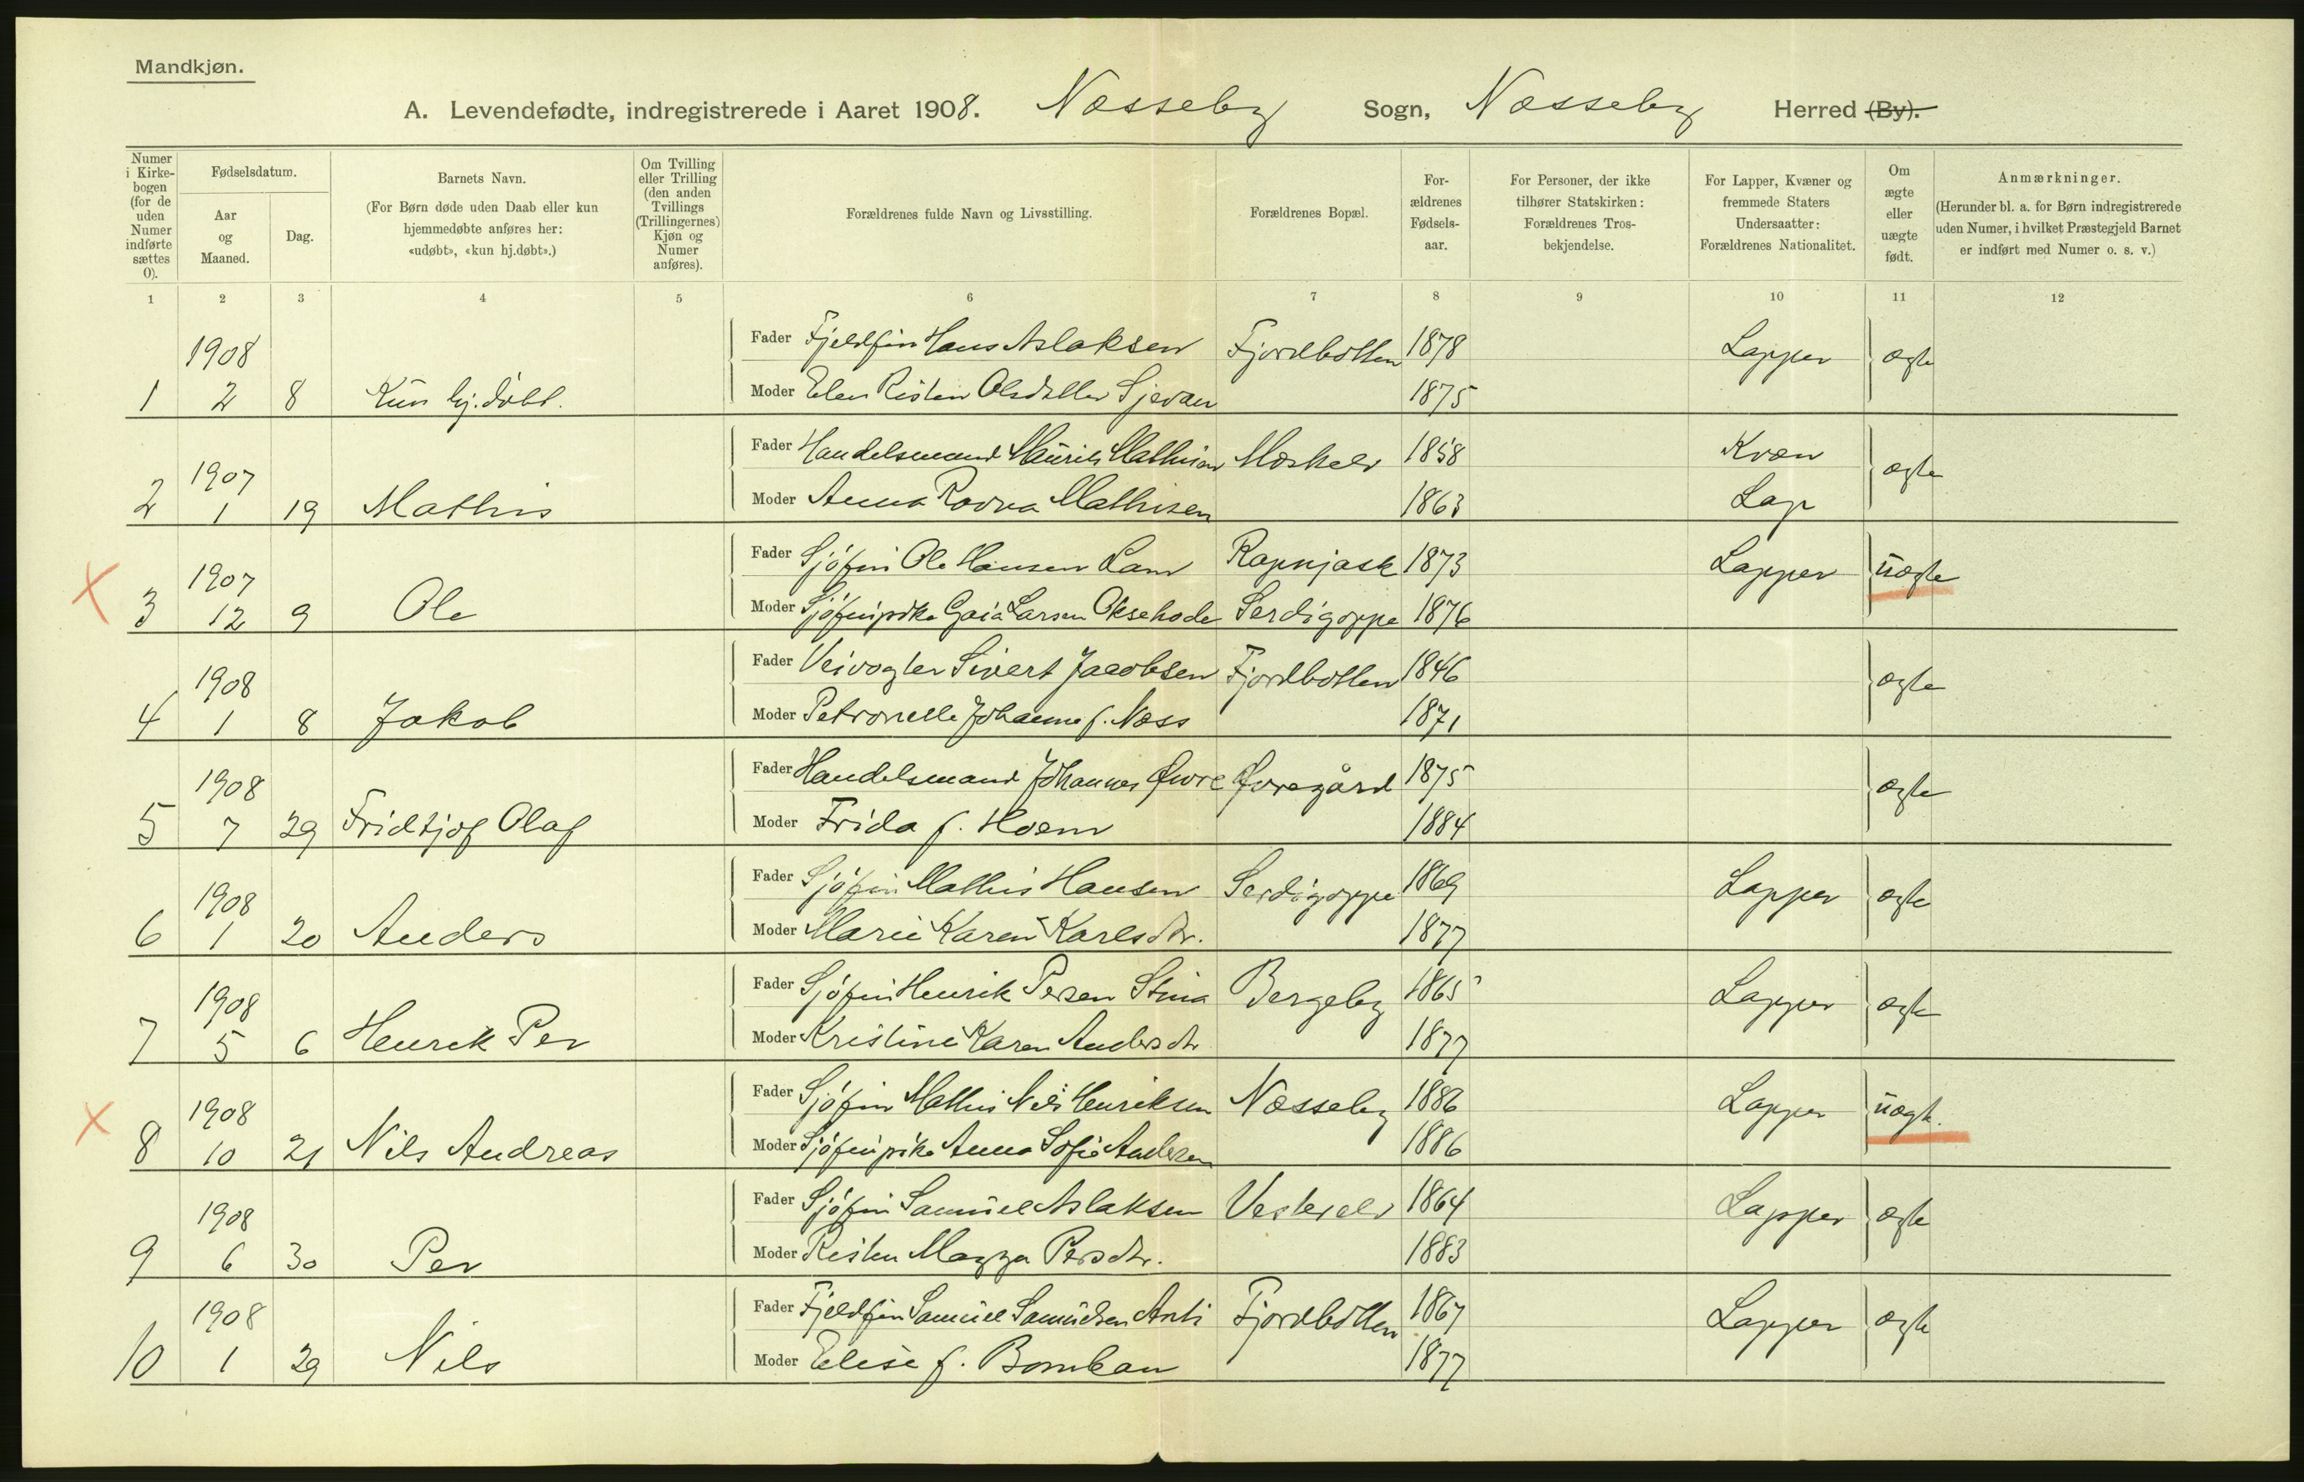 Mandkjøn.
A. Levendefødte, indregistrerede i Aaret 1908. Næsseby Sogn, Næsseby Herred (By).
Numer i Kirkebogen (for de uden Numer indførte sættes 0).
Fødselsdatum.
Aar og Maaned.
Dag.
Barnets Navn.
(For Børn døde uden Daab eller kun hjemmedøbte anføres her: «udøbt», «kun hj.døbt».)
Om Tvilling eller Trilling (den anden Tvillings (Trillingernes) Kjøn og Numer anføres).
Forældrenes fulde Navn og Livsstilling.
Forældrenes Bopæl.
Forældrenes Fødselsaar.
For Personer, der ikke tilhører Statskirken: Forældrenes Trosbekjendelse.
For Lapper, Kvæner og fremmede Staters Undersaatter: Forældrenes Nationalitet.
Om ægte eller uægte født.
Anmærkninger.
(Herunder bl. a. for Børn indregistrerede uden Numer, i hvilket Præstegjeld Barnet er indført med Numer o. s. v.)
1 2 3 4 5 6 7 8 9 10 11 12
1908 Fader Fjeldfin Hans Aslaksen Fjordbotten 1878 Lapper ægte
1 2 8 Kun hj.døbt. Moder Elen Risten Olsdatter 1875
1907 Fader Handelsmand Maurits Mathisen Mæskelv 1858 Kvæn ægte
2 1 19 Mathis Moder Anna Ravna Mathisen 1863 Lap
1907 Fader Sjøfin Ole Hansen Lam Rapnjask 1873 Lapper uægte
3 12 9 Ole Moder Sjøfinpike Gaia Larsen Oksehode Serdigoppe 1876
1908 Fader Veivogter Sivert Jacobsen Fjordbotten 1846 ægte
4 1 8 Jakob Moder Petronelle Johanne f. Næss 1871
1908 Fader Handelsmand Johannes Øwre Øvregård 1875 ægte
5 7 29 Fridtjof Olaf Moder Frida f. Hoem 1884
1908 Fader Sjøfin Mathis Hansen Serdigoppe 1869 Lapper ægte
6 1 20 Anders Moder Marie Karen Karlsdtr. 1877
1908 Fader Sjøfin Henrik Persen Stina Bergeby 1865 Lapper ægte
7 5 6 Henrik Per Moder Kristine Karen Andersdtr 1877
1908 Fader Sjøfin Mathis Nils Henriksen Næsseby 1886 Lapper uægte.
8 10 21 Nils Andreas Moder Sjøfinpike Anna Sofie Andersen 1886
1908 Fader Sjøfin Samuel Aslaksen Vesterelv 1864 Lapper ægte
9 6 30 Per Moder Risten Magga Persdtr. 1883
1908 Fader Fjeldfin Samuel Samuelsen Anti Fjordbotten 1867 Lapper ægte
10 1 29 Nils Moder Elise f. Bomban 1877